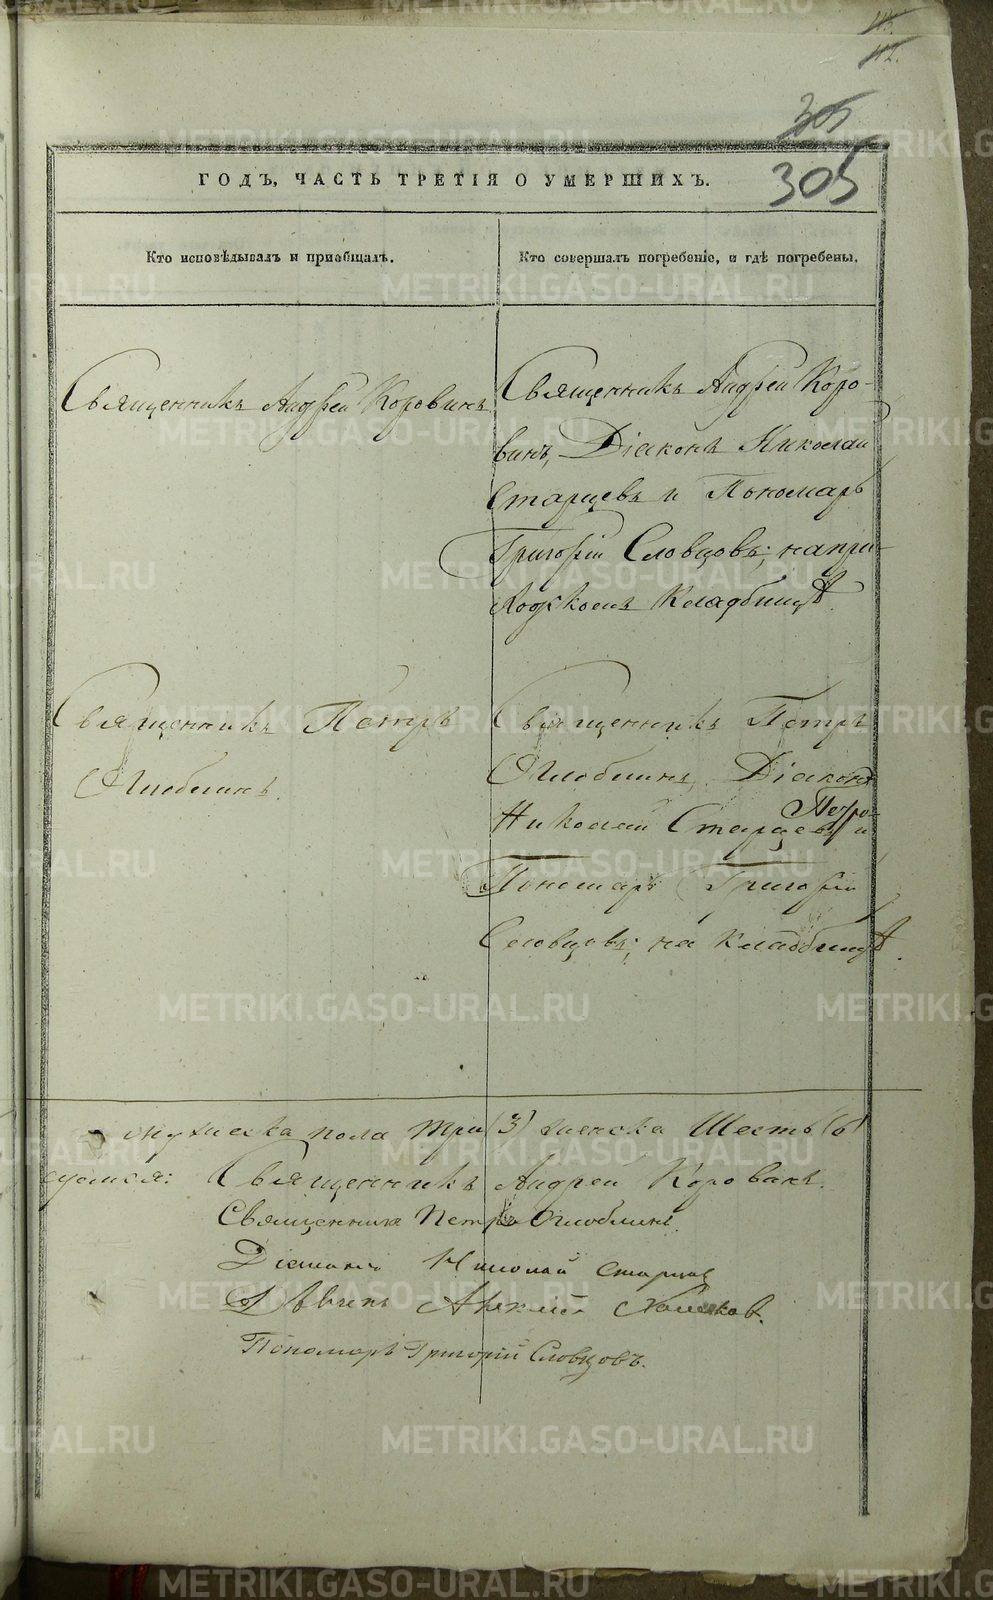 112.
305
305
ГОДЪ, ЧАСТЬ ТРЕТІЯ О УМЕРШИХЪ.
Кто исповѣдывалъ и пріобщалъ.
Кто совершалъ погребеніе, и гдѣ погребены.
Священникъ Андрей Коровинъ
Священникъ Андрей Коро-
винъ, Діаконъ Николай
Старцевъ и Пономарь
Григорій Словцовъ; на при-
ходскомъ кладбищѣ.
Священникъ Петръ
Оглоблинъ.
Священникъ Петръ
Оглоблинъ, Діаконъ
Николай Старцевъ и
Пономарь Григорій
Словцовъ; на кладбищѣ.
мужеска пола три (3) женска Шесть (6
Священникъ Андрей Коровинъ.
Священникъ Петръ Оглоблинъ.
Діаконъ Николай Старцевъ
Пономарь Григорій Словцовъ.
METRIKI.GASO-URAL.RU